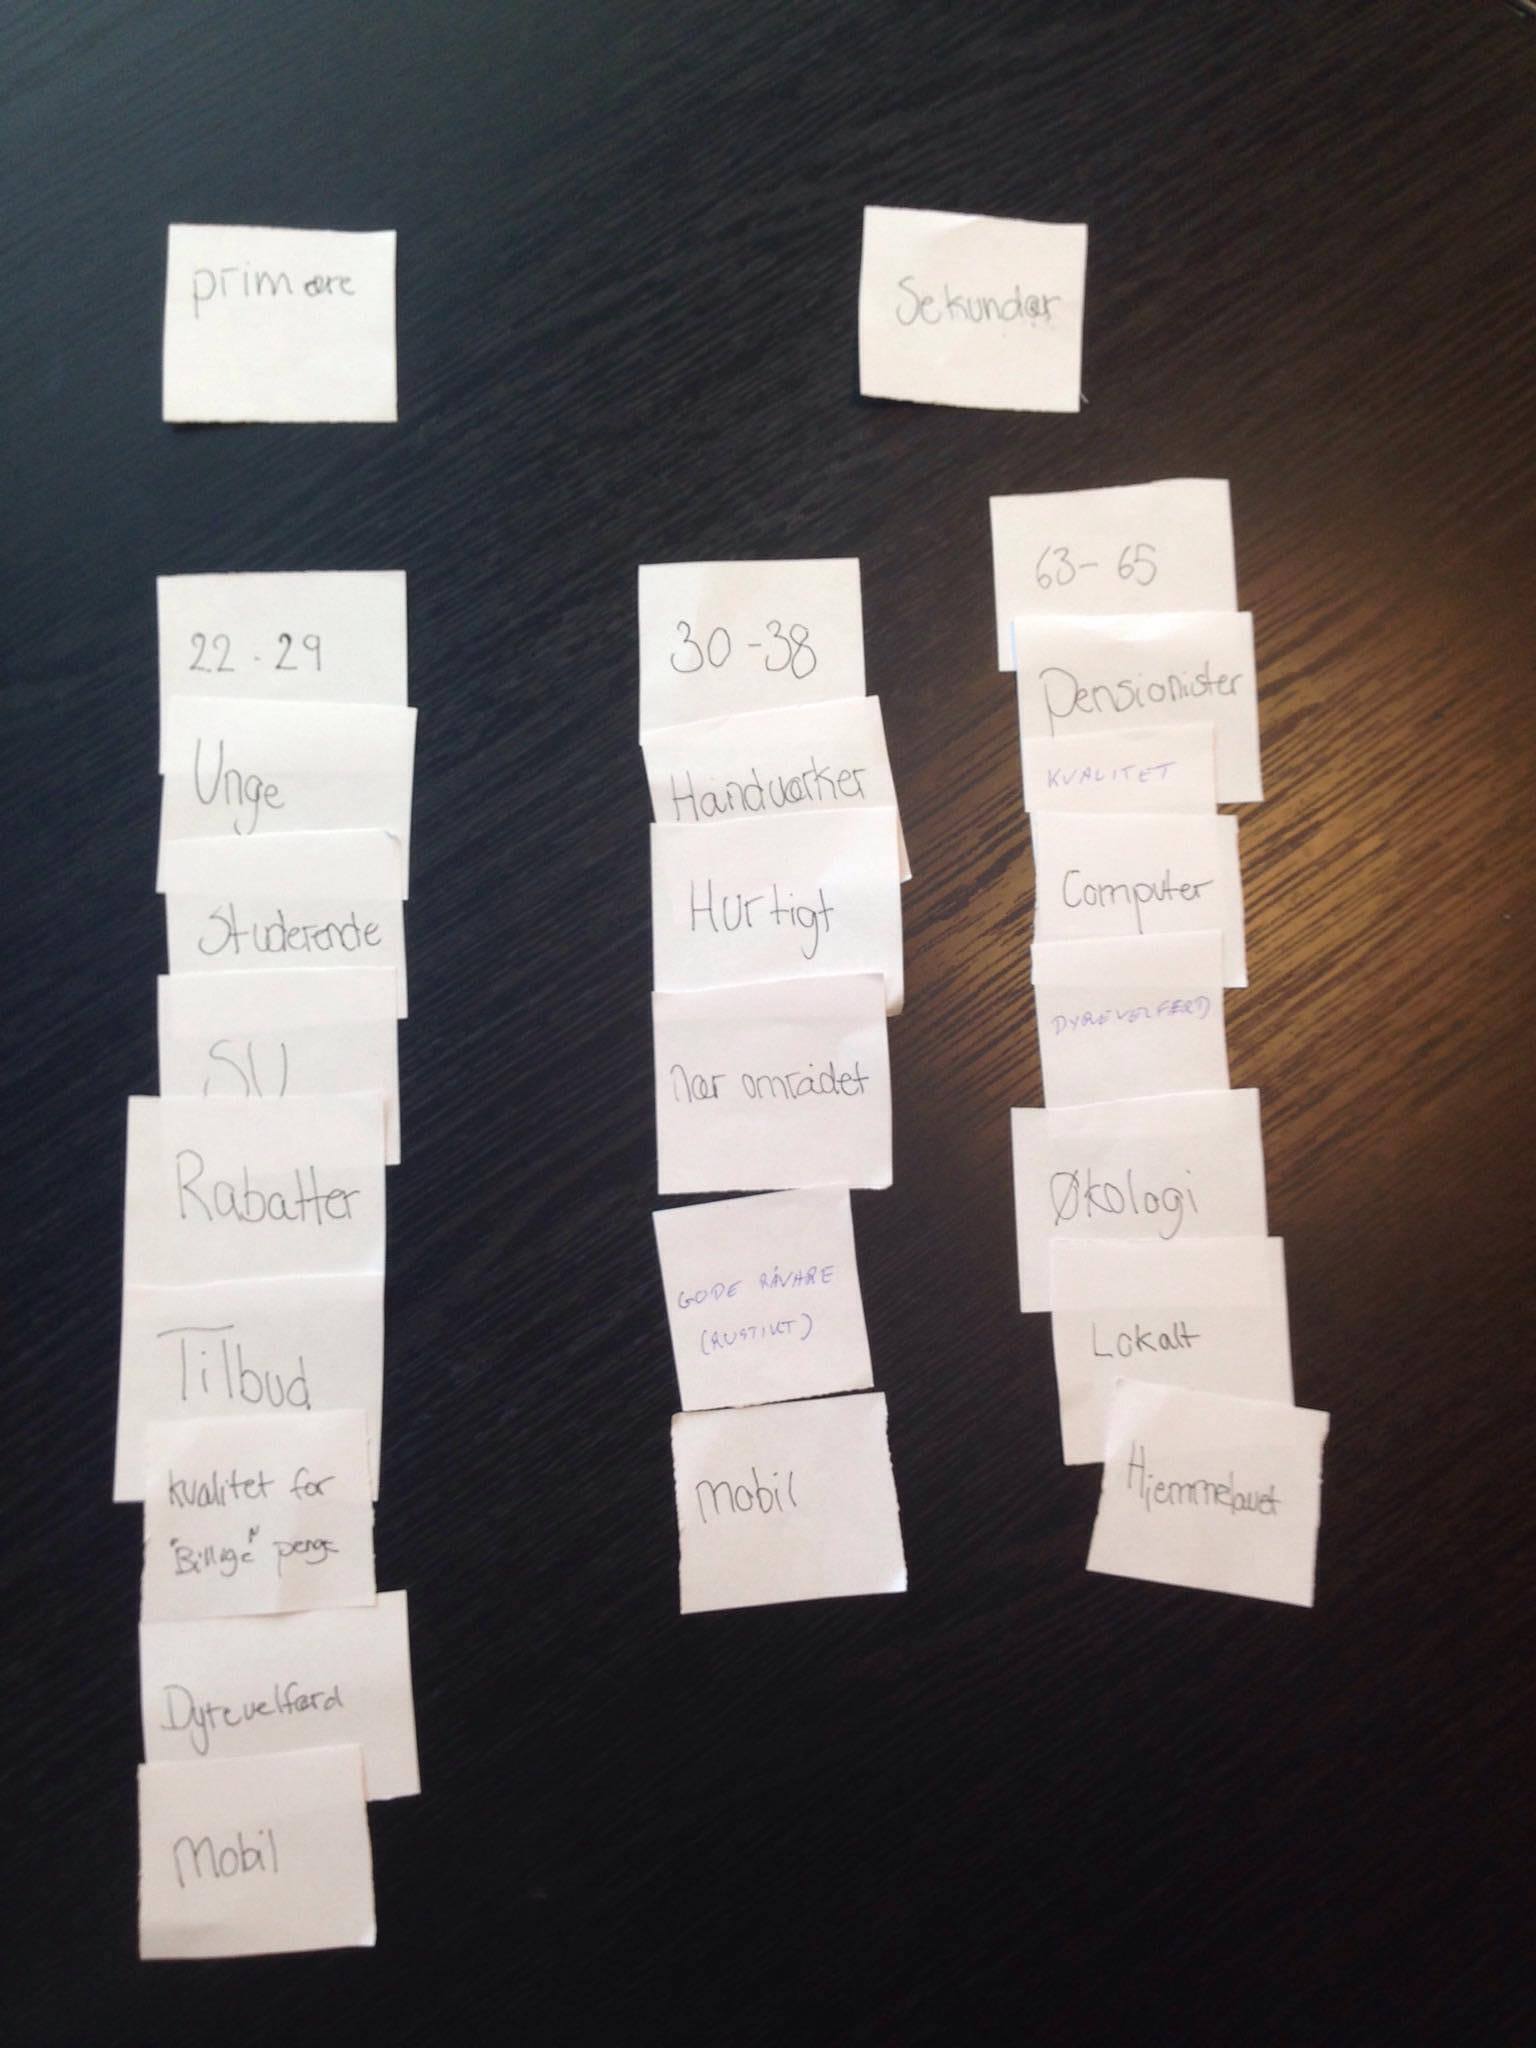 primære
Sekundær
22-29
Unge
Studerende
SU
Rabatter
Tilbud
kvalitet for
"Billige" penge
Dyrevelfærd
Mobil
30-38
Håndværker
Hurtigt
nær området
GODE RÅVARE
(RUSTIKT)
mobil
63-65
Pensionister
KVALITET
Computer
DYREVELFÆRD
Økologi
Lokalt
Hjemmelavet